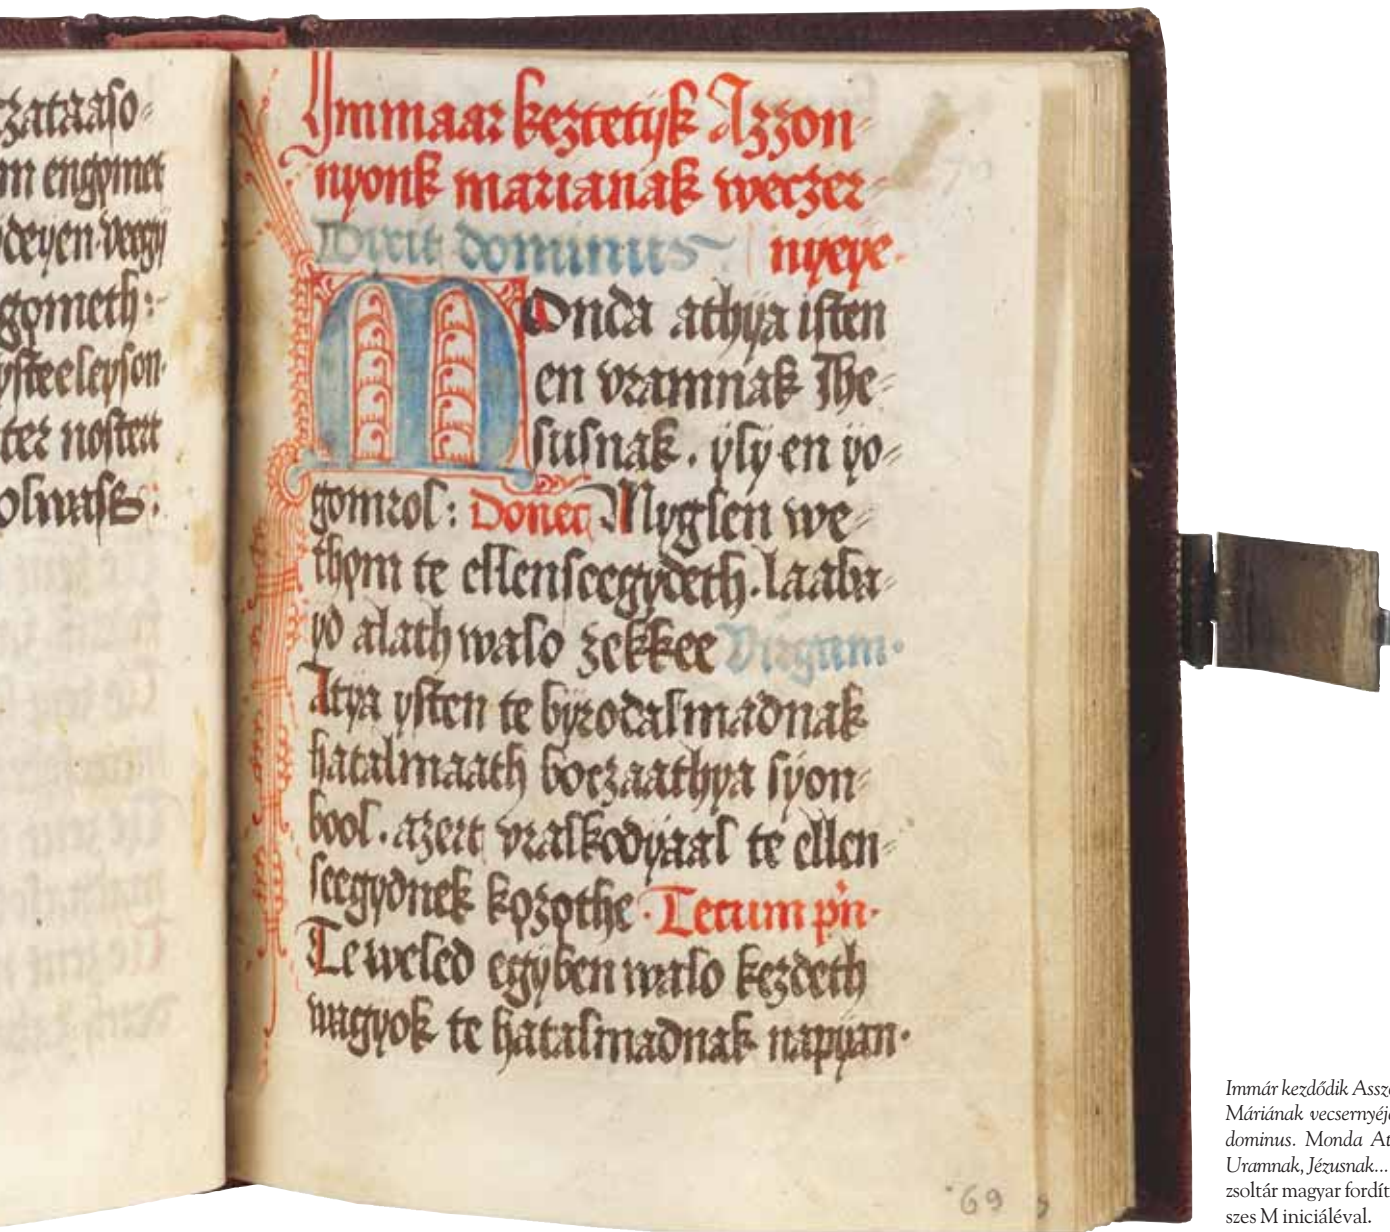 zataaso⸗
m engpmet
ydeyen veegy
gometh:⸗
ysteeleyson⸗
ter nostert
olwass:
Immaar keztetijk Azzon⸗
nyonk marianak weczer⸗
Dixit dominus nyeye⸗
MOnda athya isten
en vramnak Ihe⸗
susnak. ysy en yo⸗
gomrol: Donec Myglen we⸗
thom te ellenseegydeth. laaba⸗
yd alath walo zekkee Virgam.
Atya ysten te byrodalmadnak
hatalmaath boczaathya syon⸗
bool. azert vralkodyaal te ellen⸗
seegydnek kozothe. Tecum pn.
Te weled egyben walo kezdeth
wagyok te hatalmadnak napyan.
69
Immár kezdődik Assz
Máriának vecsernyéj
dominus. Monda At
Uramnak, Jézusnak...
zsoltár magyar fordít
szes M iniciáléval.